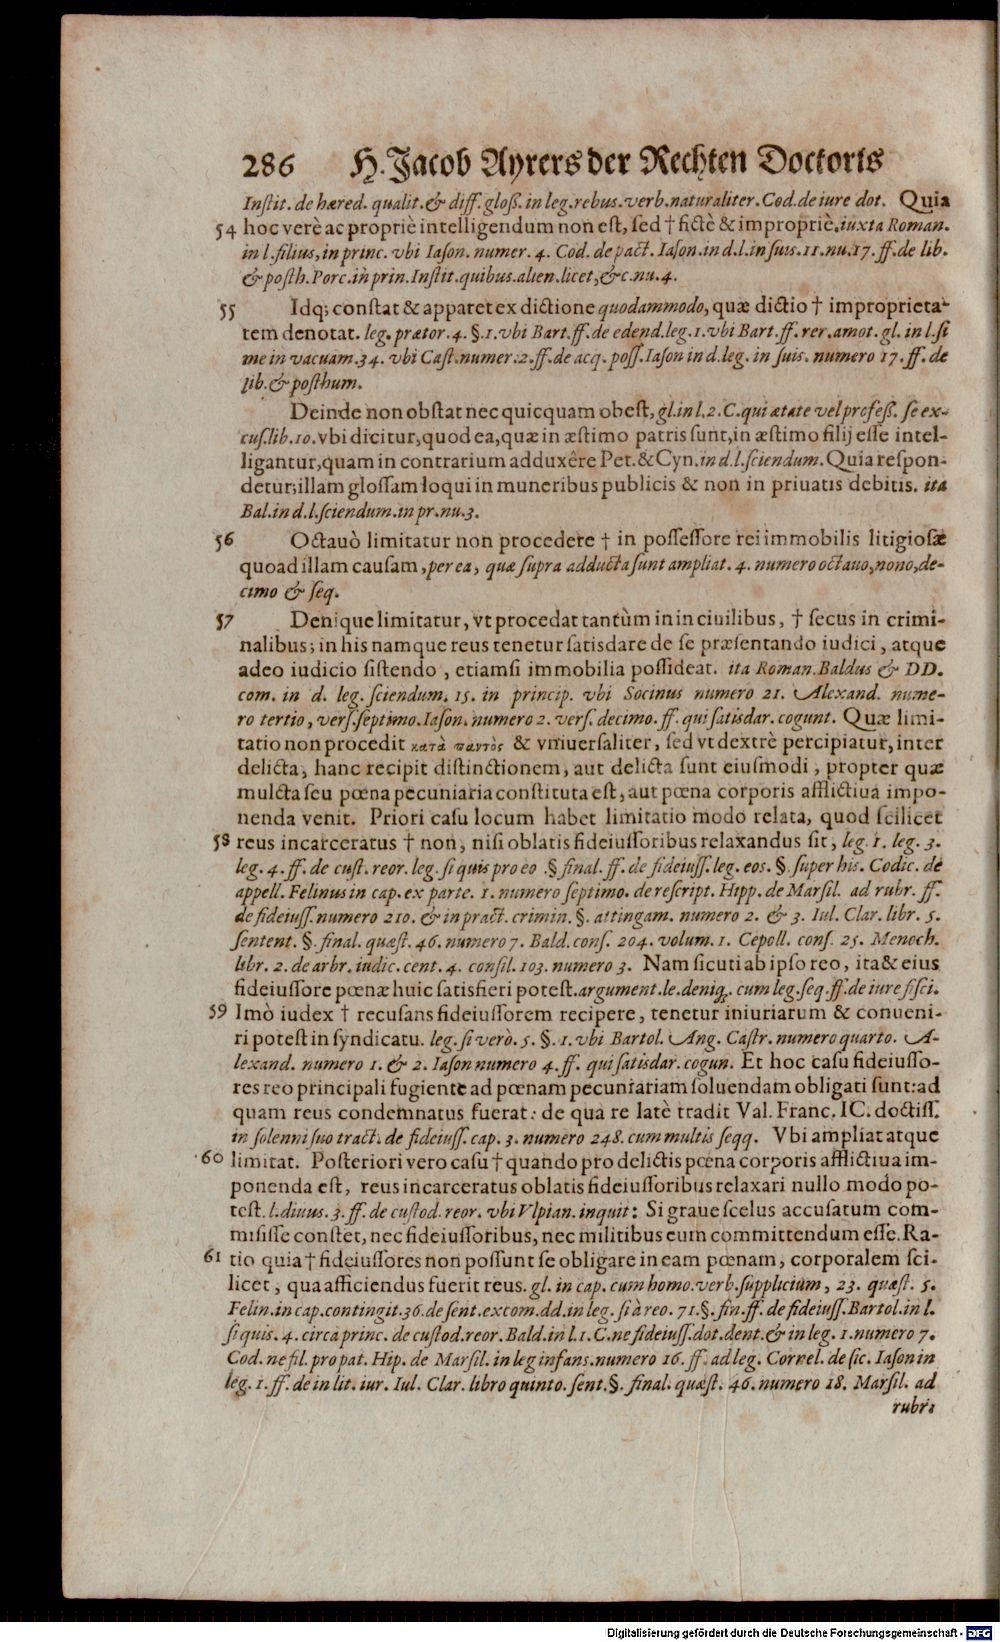 286 H. Jacob Ayrers der Rechten Doctoris
Inſtit. de hæred. qualit. & diff. gloß. in leg. rebus. verb. naturaliter. Cod. de iure dot. Quia
54 hoc verè ac propriè intelligendum non eſt, ſed † fictè & impropriè. iuxta Roman.
in l. filius, in princ. vbi Iaſon. numer. 4. Cod. de pact. Iaſon. in d. l. in ſuis. 11. nu. 17. ff. de lib.
& poſth. Porc. in prin. Inſtit. quibus. alien. licet, &c. nu. 4.
55 Idq; conſtat & apparet ex dictione quodammodo, quæ dictio † improprieta-
tem denotat. leg. prætor. 4. §. 1. vbi Bart. ff. de edend. leg. 1. vbi Bart. ff. rer. amot. gl. in l. ſi
me in vacuam. 34. vbi Caſt. numer. 2. ff. de acq. poſſ. Iaſon in d. leg. in ſuis. numero 17. ff. de
lib. & poſthum.
Deinde non obſtat nec quicquam obeſt, gl. in l. 2. C. qui ætate vel profeß. ſe ex-
cuſ. lib. 10. vbi dicitur, quod ea, quæ in æſtimo patris ſunt, in æſtimo filij eſſe intel-
ligantur, quam in contrarium adduxêre Pet. & Cyn. in d. l. ſciendum. Quia reſpon-
detur; illam gloſſam loqui in muneribus publicis & non in priuatis debitis. ita
Bal. in d. l. ſciendum. in pr. nu. 3.
56 Octauò limitatur non procedere † in poſſeſſore rei immobilis litigioſæ
quoad illam cauſam, per ea, quæ ſupra adducta ſunt ampliat. 4. numero octauo, nono, de-
cimo & ſeq.
57 Denique limitatur, vt procedat tantùm in in ciuilibus, † ſecus in crimi-
nalibus; in his namque reus tenetur ſatisdare de ſe præſentando iudici, atque
adeo iudicio ſiſtendo, etiamſi immobilia poſſideat. ita Roman. Baldus & DD.
com. in d. leg. ſciendum. 15. in princip. vbi Socinus numero 21. Alexand. nume-
ro tertio, verſ. ſeptimo. Iaſon. numero 2. verſ. decimo. ff. qui ſatisdar. cogunt. Quæ limi-
tatio non procedit κατὰ παντὸς & vniuerſaliter, ſed vt dextrè percipiatur, inter
delicta, hanc recipit diſtinctionem, aut delicta ſunt eiuſmodi, propter quæ
mulcta ſeu pœna pecuniaria conſtituta eſt, aut pœna corporis afflictiua impo-
nenda venit. Priori caſu locum habet limitatio modo relata, quod ſcilicet
58 reus incarceratus † non, niſi oblatis fideiuſſoribus relaxandus ſit, leg. 1. leg. 3.
leg. 4. ff. de cuſt. reor. leg. ſi quis pro eo. § final. ff. de fideiuſſ. leg. eos. §. ſuper his. Codic. de
appell. Felinus in cap. ex parte. 1. numero ſeptimo. de reſcript. Hipp. de Marſil. ad rubr. ff.
de fideiuſſ. numero 210. & in pract. crimin. §. attingam. numero 2. & 3. Iul. Clar. libr. 5.
ſentent. §. final. quæſt. 46. numero 7. Bald. conſ. 204. volum. 1. Cepoll. conſ. 25. Menoch.
libr. 2. de arbr. iudic. cent. 4. conſil. 103. numero 3. Nam ſicuti ab ipſo reo, ita & eius
fideiuſſore pœnæ huic ſatisfieri poteſt. argument. le. deniq; cum leg. ſeq. ff. de iure fiſci.
59 Imò iudex † recuſans fideiuſſorem recipere, tenetur iniuriarum & conueni-
ri poteſt in ſyndicatu. leg. ſi verò. 5. §. 1. vbi Bartol. Ang. Caſtr. numero quarto. A-
lexand. numero 1. & 2. Iaſon numero 4. ff. qui ſatisdar. cogun. Et hoc caſu fideiuſſo-
res reo principali fugiente ad pœnam pecuniariam ſoluendam obligati ſunt: ad
quam reus condemnatus fuerat: de qua re latè tradit Val. Franc. IC. doctiſſ.
in ſolenni ſuo tract. de fideiuſſ. cap. 3. numero 248. cum multis ſeqq. Vbi ampliat atque
60 limitat. Poſteriori vero caſu † quando pro delictis pœna corporis afflictiua im-
ponenda eſt, reus incarceratus oblatis fideiuſſoribus relaxari nullo modo po-
teſt. l. diuus. 3. ff. de cuſtod. reor. vbi Vlpian. inquit: Si graue ſcelus accuſatum com-
miſiſſe conſtet, nec fideiuſſoribus, nec militibus eum committendum eſſe. Ra-
61 tio quia † fideiuſſores non poſſunt ſe obligare in eam pœnam, corporalem ſci-
licet, qua afficiendus fuerit reus. gl. in cap. cum homo. verb. ſupplicium, 23. quæſt. 5.
Felin. in cap. contingit. 36. de ſent. excom. dd. in leg. ſi à reo. 71. §. fin. ff. de fideiuſſ. Bartol. in l.
ſi quis. 4. circa princ. de cuſtod. reor. Bald. in l. 1. C. ne fideiuſſ. dot. dent. & in leg. 1. numero 7.
Cod. ne fil. pro pat. Hip. de Marſil. in leg infans. numero 16. ff. ad leg. Cornel. de ſic. Iaſon in
leg. 1. ff. de in lit. iur. Iul. Clar. libro quinto. ſent. §. final. quæſt. 46. numero 18. Marſil. ad
rubr:
Digitalisierung gefördert durch die Deutsche Forschungsgemeinschaft - DFG